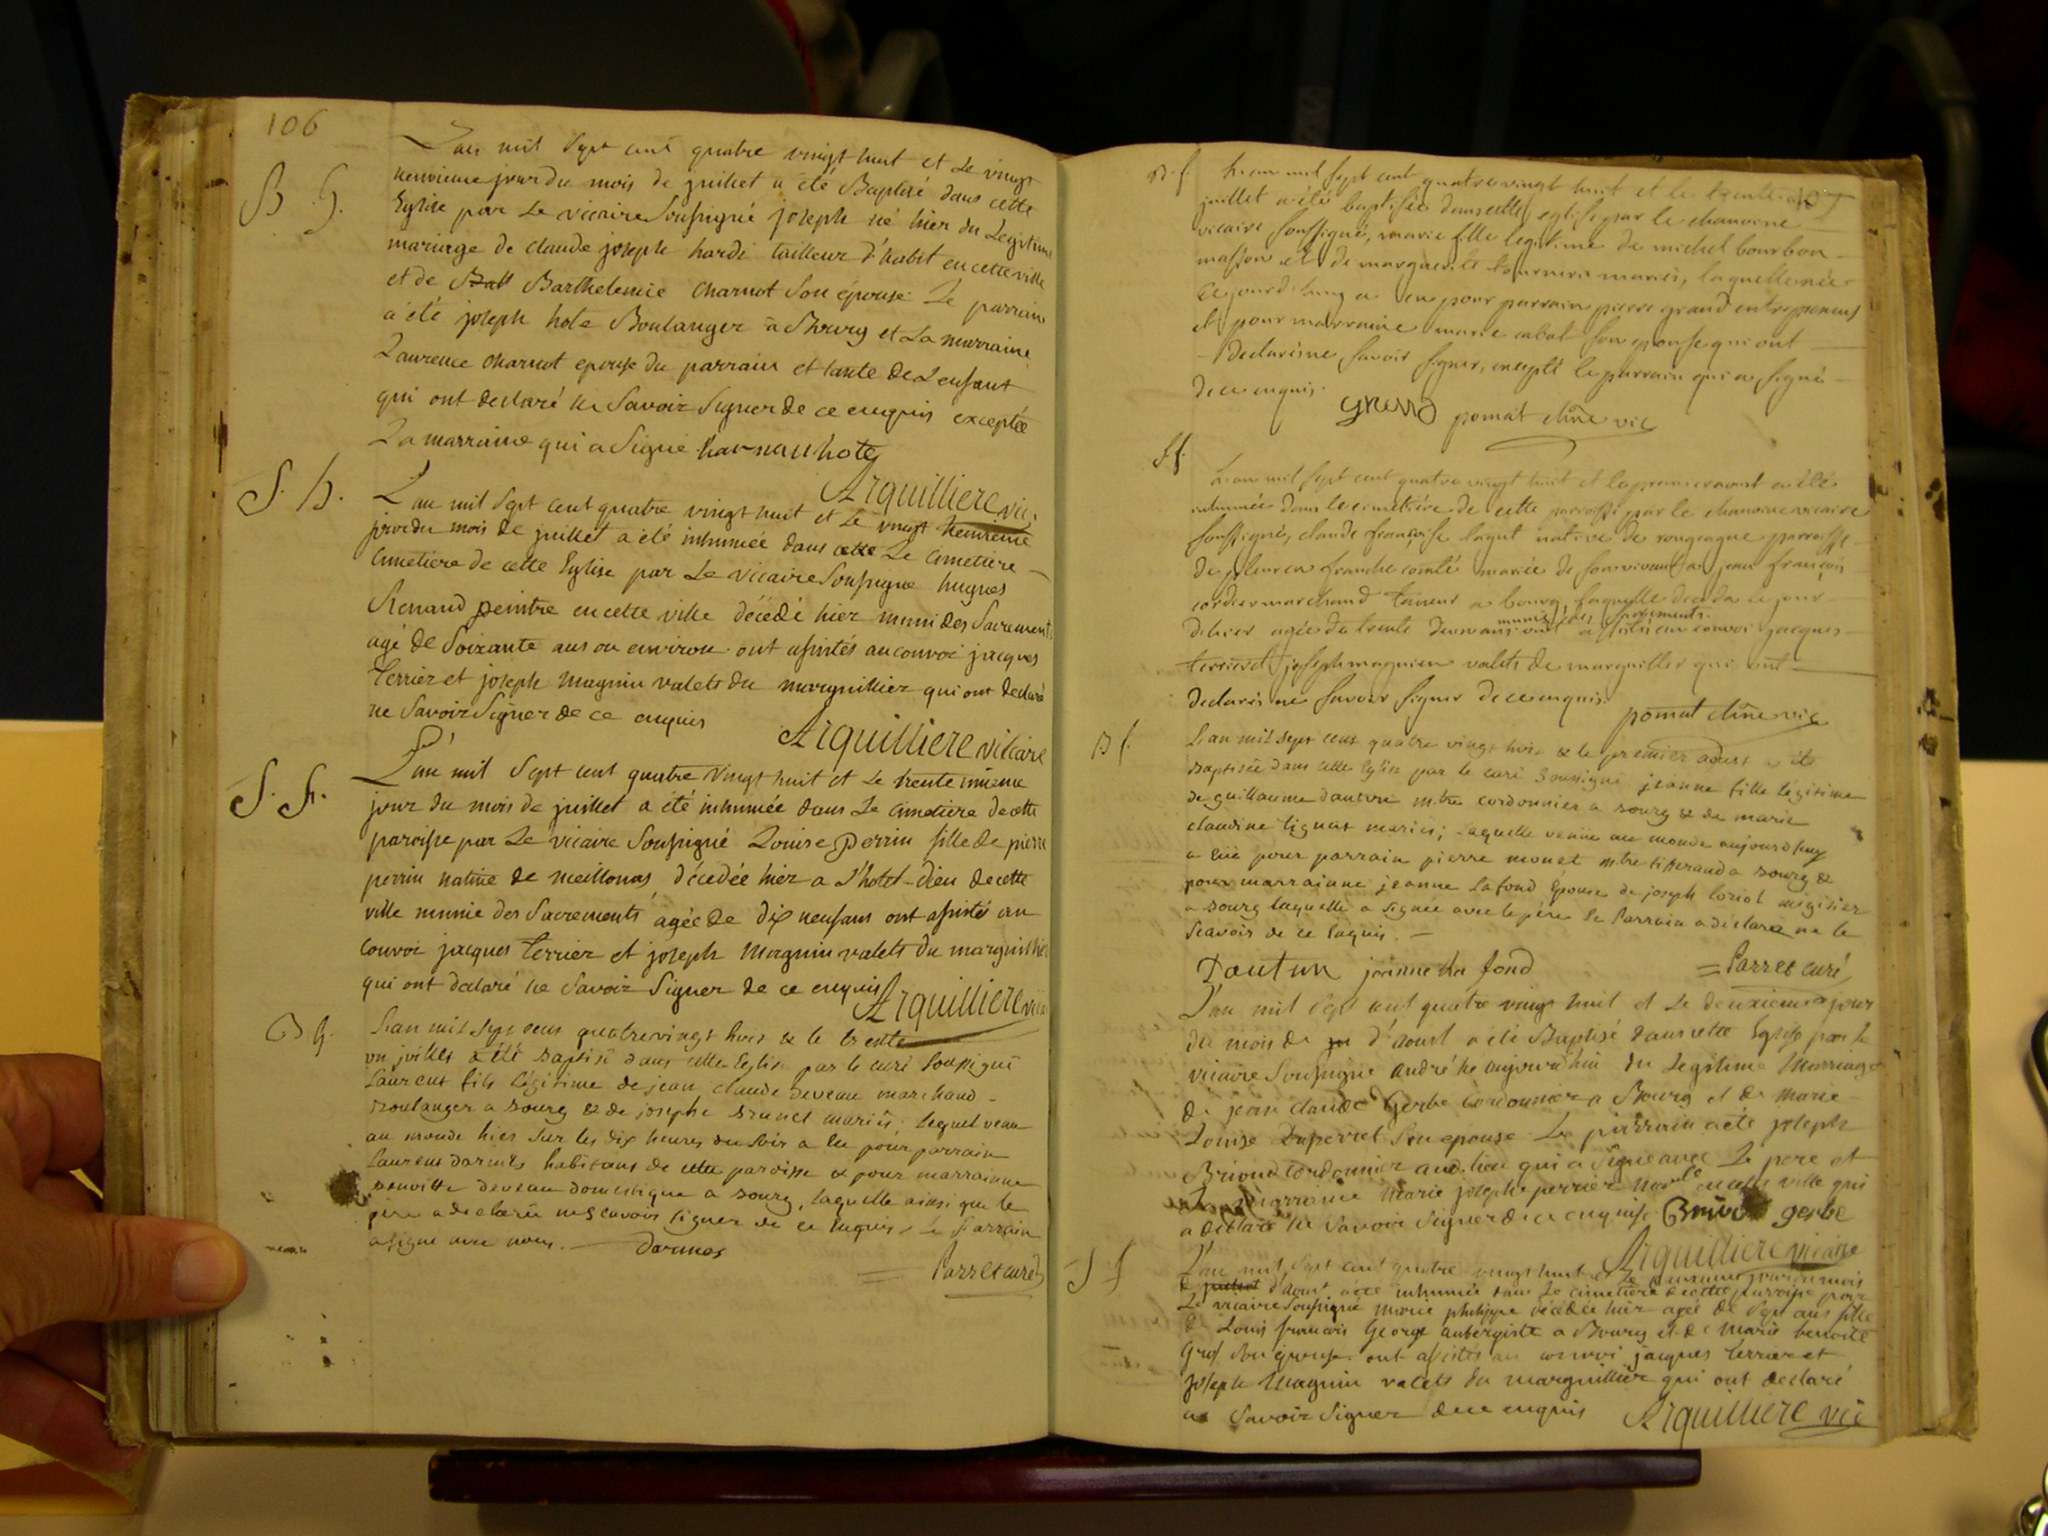 106
B G.
L'an mil sept cent quatre vingt huit et Le vingt
neuvieme jour du mois de juillet a été Baptisé dans cette
Eglise par Le vicaire Soussigné joseph né hier du Legitime
mariage de claude joseph hardi tailleur d'habit en cette ville
et de Barthelemie charnot Son épouse Le parrain
a été joseph hote Boulanger à Bourg et La marraine
Laurence charnot epouse du parrain et tante de L'enfant
qui ont declaré ne Savoir Signer de ce enquis exceptée
La marraine qui a Signé
Arquilliere vic.
S. h.
L'an mil Sept cent quatre vingt huit et Le vingt neuvieme
jour du mois de juillet a été inhumée dans cette Le Cimetiere
cimetiere de cette Eglise par Le vicaire Soussigné hugues
Renaud peintre en cette ville décédé hier muni des Sacrements
agé de Soixante ans ou environ ont assistés au convoi jacques
Terrier et joseph magnin valets du marguillier qui ont declaré
ne Savoir Signer de ce enquis
Arquilliere vicaire
S. F.
L'an mil Sept cent quatre vingt huit et Le trente
jour du mois de juillet a été inhumée dans Le cimetiere de cette
paroisse par Le vicaire Soussigné Louise Perrin fille de pierre
perrin native de meillonas décedée hier a L'hotel-Dieu de cette
ville munie des Sacrements agée de dix neuf ans ont assistés au
convoi jacques Terrier et joseph magnin valets du marguillier
qui ont declaré ne Savoir Signer de ce enquis
Arquilliere vic
B g.
L'an mil sept cens quatre vingt huit & le trente
un juillet a été baptisé dans cette Eglise par le curé soussigné
Laurent fils légitime de jean claude deveau marchand
Boulanger a Bourg & de josephe Brunet mariés; lequel venu
au monde hier sur les dix heures du soir a eu pour parrain
Laurens darmes habitant de cette paroisse & pour marrainne
benoitte deveau domestique a Bourg, laquelle ainsi que le
pere a declaré ne scavoir signer de ce enquis, le Parrain
a signé avec nous. Darmes
Parret curé
107
B. f.
L'an mil sept cent quatre vingt huit et le trente
juillet a été baptisée dans cette eglise par le chanoine
vicaire soussigné, marie fille legitime de michel bourbon
masson et de marguerite tournier mariés, laquelle née
ce jourd'huy a eu pour parrain pierre grand entrepreneur
et pour marraine marie cabat son epouse qui ont
declarés ne savoir signer, excepté le parrain qui a signé
de ce enquis.
pomat chne vic
S f.
L'an mil sept cent quatre vingt huit et le premier aout a été
inhumée dans le cimetière de cette paroisse par le chanoine vicaire
soussigné, claude françoise native de parroisse
de en franche comté mariée de son vivant a jean françois
cordier marchand tanneur a bourg, laquelle deceda le jour
d'hier agée de trente deux ans munie des sacrements ont assistés au convoi jacques
terrier et joseph magnien valets de marguillier qui ont
declarés ne savoir signer de ce enquis
pomat chne vic
B f.
L'an mil sept cent quatre vingt huit & le premier aoust a été
Baptisée dans cette Eglise par le curé Soussigné jeanne fille légitime
de guillaume dautun mtre cordonnier a Bourg & de marie
claudine lignat mariés; laquelle venüe au monde aujourd'huy
a eüe pour parrain pierre monet mtre tisserand a Bourg &
pour marrainne jeanne Lafond épouse de joseph loriol megisier
a Bourg laquelle a signée avec le père le Parrain a déclaré ne le
Scavoir de ce Enquis.
Dautun jeanne la fond Parret curé
L'an mil Sept cent quatre vingt huit et Le deuxieme jour
du mois de d'aoust a été Baptisé dans cette Eglise par Le
vicaire Soussigné andré né aujourd'hui du Legitime Mariage
de jean claude Gerbe Cordonnier a Bourg et de Marie
Louise Duperret Son epouse Le parrain a été joseph
Briond cordonnier audit lieu qui a Signé avec Le pere et
La marraine Marie josephe perrier en cette ville qui
a declaré ne Savoir Signer de ce enquise gerbe
Arquilliere vicaire
S f
L'an mil Sept cent quatre vingt huit et Le deuxieme jour du mois
d'aout a été inhumée dans Le cimetiere de cette paroisse par
Le vicaire Soussigné Marie philippe décédée hier agée de Sept ans fille
de Louis francois George aubergiste a Bourg et de Marie benoite
Gros Son épouse ont assistés au convoi jacques Terrier et
joseph Magnin valets du marguillier qui ont declaré
ne Savoir Signer de ce enquis Arquilliere vic